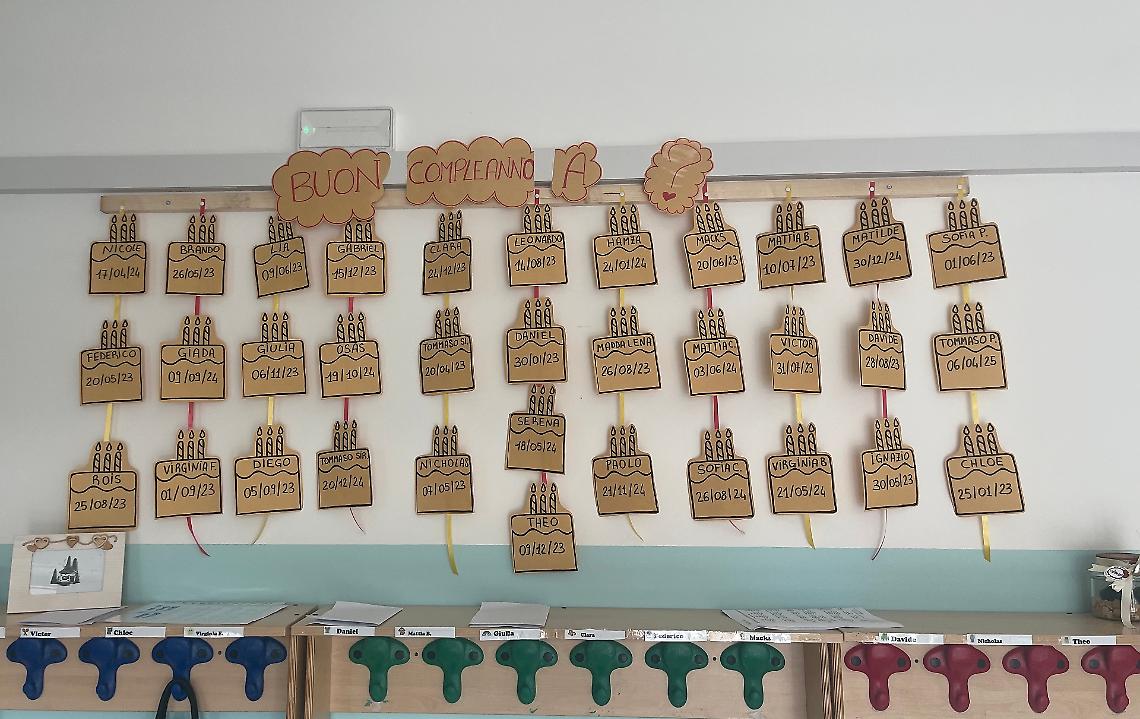 BUON COMPLEANNO A ?
NICOLE
17/04/24
BRANDO
26/05/23
LIA
09/06/23
GABRIEL
15/12/23
CLARA
24/12/23
LEONARDO
14/08/23
HAMZA
24/01/24
MACKS
20/06/23
MATTIA B.
10/07/23
MATILDE
30/12/24
SOFIA P.
01/06/23
FEDERICO
20/05/23
GIADA
09/09/24
GIULIA
06/11/23
OSAS
19/10/24
TOMMASO SI.
20/04/23
DANIEL
30/01/23
MADDALENA
26/08/23
MATTIA C.
03/06/24
VICTOR
31/07/23
DAVIDE
28/08/23
TOMMASO P.
06/04/25
SERENA
18/05/24
ROIS
25/08/23
VIRGINIA F.
01/09/23
DIEGO
05/09/23
TOMMASO SIR.
20/12/24
NICHOLAS
07/05/23
THEO
09/12/23
PAOLO
21/11/24
SOFIA C.
26/08/24
VIRGINIA B
21/05/24
IGNAZIO
30/05/23
CHLOE
25/01/23
Victor
Chloe
Daniel
Mattia B.
Giulia
Clara
Federico
Macks
Davide
Nicholas
Theo